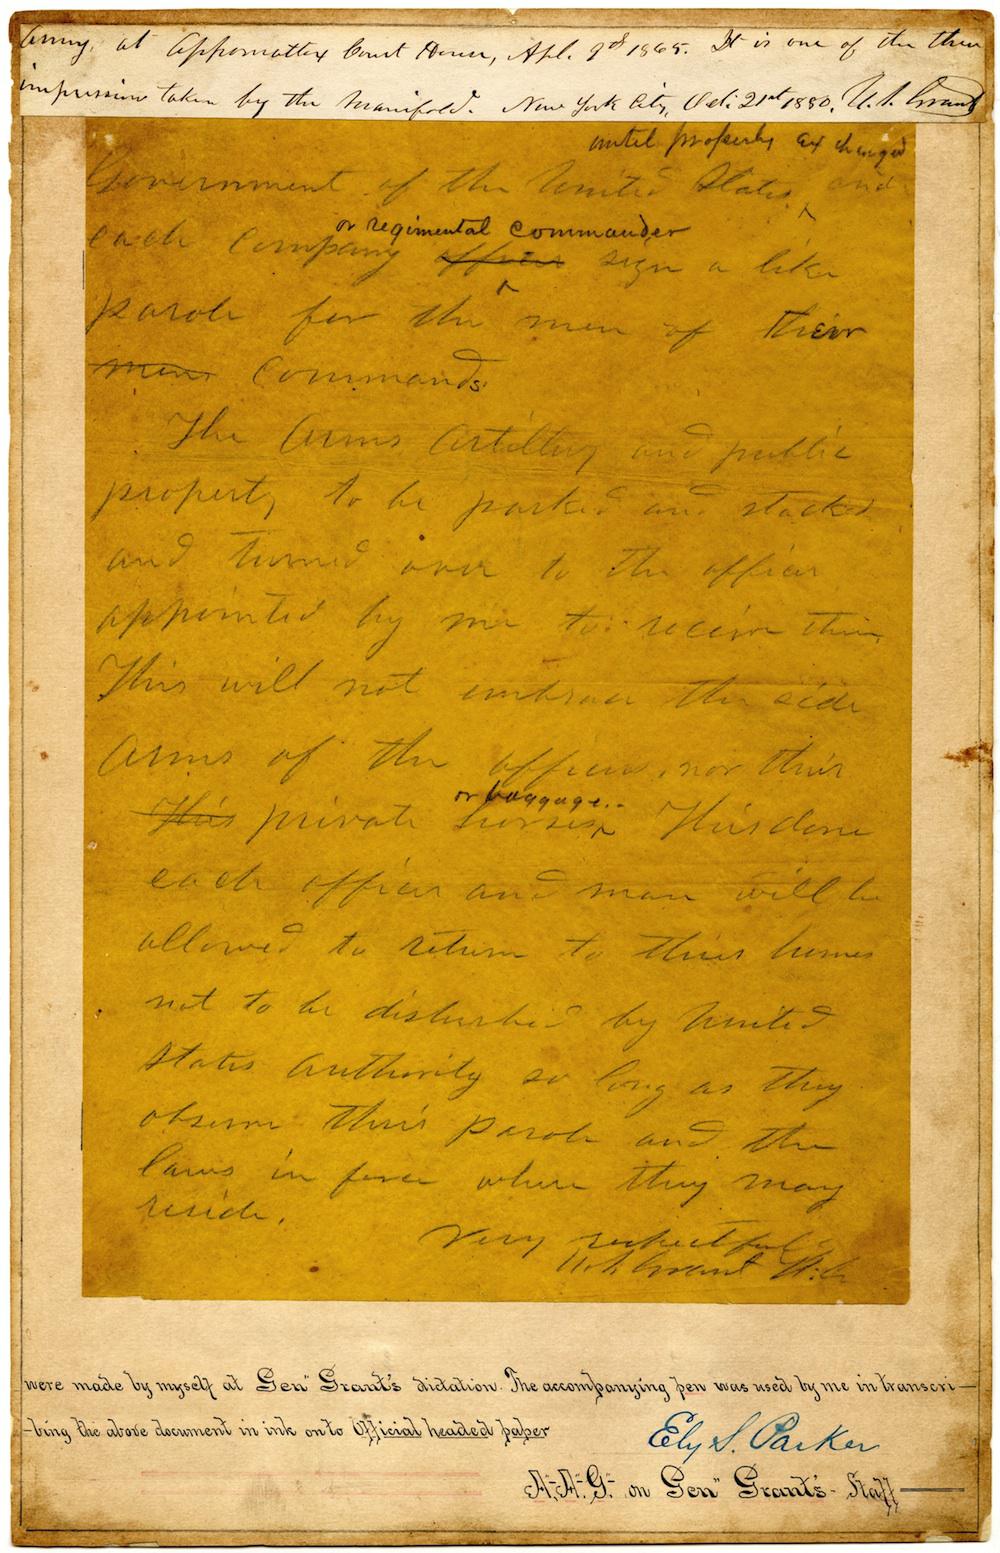 Army, at Appomattox Court House, Apl. 9th 1865. It is one of the three
impressions taken by the Manifold. New York City, Oct. 21st 1880, U. S. Grant
until properly exchanged
Government of the United States and
or regimental commander
each company officer sign a like
parole for the men of their
men commands.
The Arms Artillery and public
property to be parked and stacked
and turned over to the officer
appointed by me to receive them
This will not embrace the side
Arms of the officers, nor their
or baggage..
This private horses This done
each officer and man will be
allowed to return to their homes
not to be disturbed by United
States Authority so long as they
observe their parole and the
laws in force where they may
reside.
Very respectfully
U. S. Grant
were made by myself at Gen'' Grant's dictation. The accompanying pen was used by me in transcri—
-bing the above document in ink onto Official headed paper
Ely S. Parker
A.A.G. on Gen'' Grant's Staff